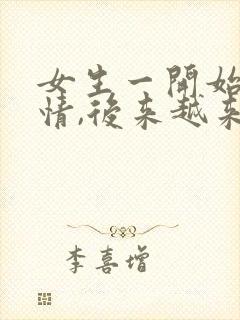 女生一開始
情,後来越来
李喜增